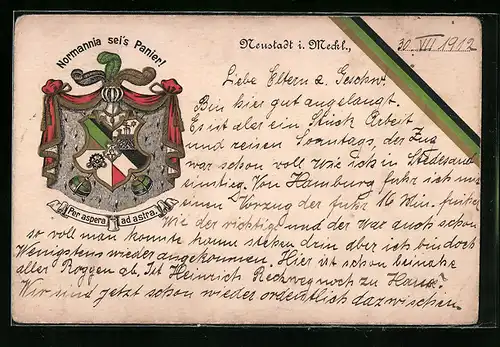 Normannia sei's Panier!
Neustadt i. Meckl., 30. VII 1912
Liebe Eltern u. Geschw.
Bin hier gut angelangt.
Es ist aber ein Stück Arbeit
und reisen Sonntags, der Zug
war schon voll wie ich in
einstieg. Von Hamburg fuhr ich mit
einen Vorzug der fuhr 16 Min. früher
Wie der richtige und der war auch schon
so voll man konnte kaum stehen drin aber ich bin doch
Wenigstens wieder angekommen. Hier ist schon beinahe
aller Roggen ab. Ist Heinrich noch zu Hause?
Wir sind jetzt schon wieder ordentlich dazwischen.
Per aspera ad astra.